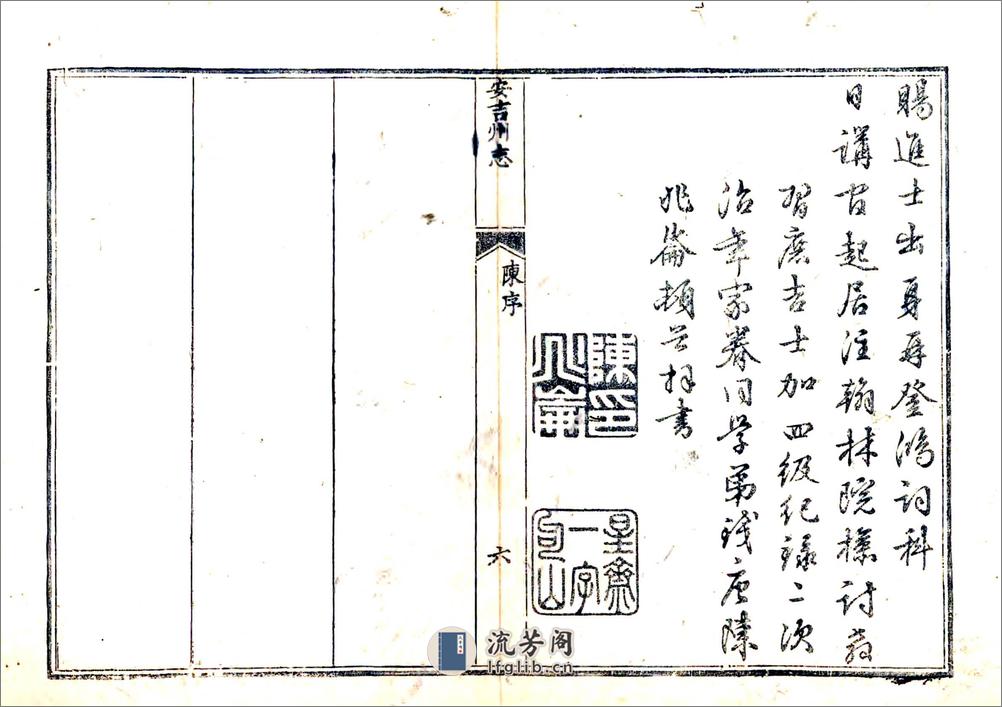 賜進士出身再登鴻詞科
日講官起居注翰林院檢討教
習庶吉士加四級紀録二次
治年家眷同學弟錢唐陳
兆崙頓首拜書
陳印兆崙
星齋一字句山
安吉州志
陳序
六
流芳阁
lfglib.cn